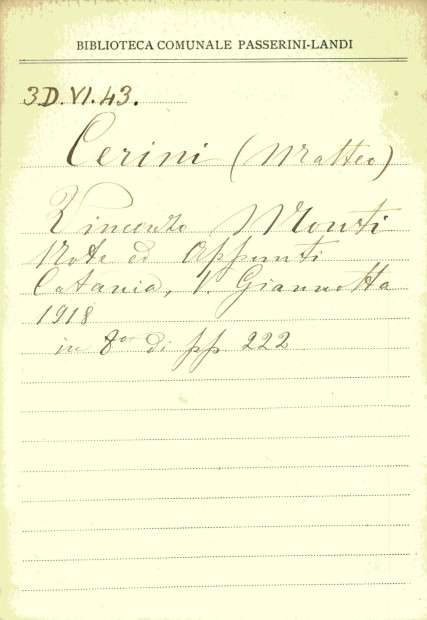 BIBLIOTECA COMUNALE PASSERINI-LANDI
3D.VI.43.
Cerini (Matteo)
Vincenzo Monti
Note ed Appunti
Catania, V. Giannotta
1918
in 8º di pp 222